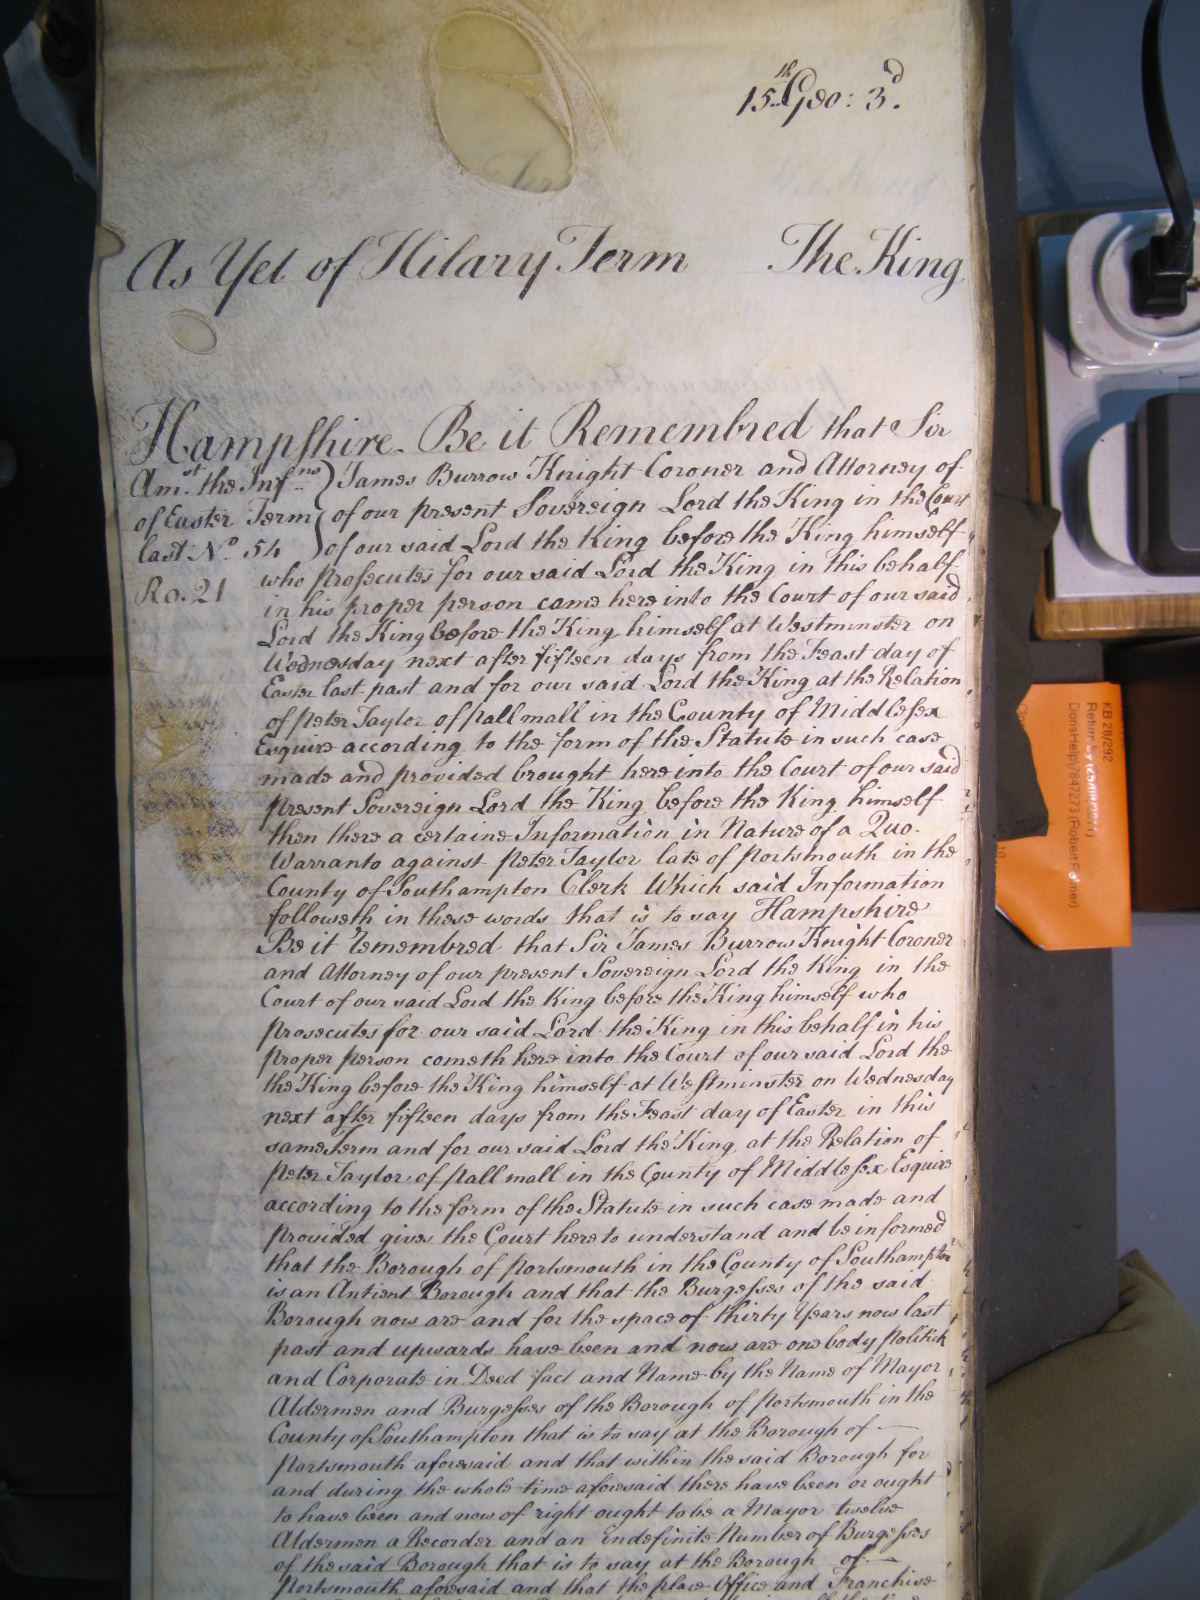 15th Geo: 3d.
As Yet of Hilary Term The King
Hampshire. Be it Remembred that Sir
Amst. the Infns. James Burrow Knight Coroner and Attorney of
of Easter Term of our present Sovereign Lord the King in the Court
last No. 54 of our said Lord the King before the King himself
who prosecutes for our said Lord the King in this behalf
Ro. 21
in his proper person came here into the Court of our said
Lord the King before the King himself at Westminster on
Wednesday next after fifteen days from the Feast day of
Easter last past and for our said Lord the King at the Relation
of Peter Taylor of Pall mall in the County of Middlesex
Esquire according to the form of the Statute in such case
made and provided brought here into the Court of our said
present Sovereign Lord the King before the King himself
then there a certaine Information in Nature of a Quo
Warranto against Peter Taylor late of Portsmouth in the
County of Southampton Clerk Which said Information
followeth in these words that is to say Hampshire
Be it remembred that Sir James Burrow Knight Coroner
and Attorney of our present Sovereign Lord the King in the
Court of our said Lord the King before the King himself who
prosecutes for our said Lord the King in this behalf in his
proper person cometh here into the Court of our said Lord the
the King before the King himself at Westminster on Wednesday
next after fifteen days from the Feast day of Easter in this
same Term and for our said Lord the King at the Relation of
Peter Taylor of Pall mall in the County of Middlesex Esquire
according to the form of the Statute in such case made and
provided gives the Court here to understand and be informed
that the Borough of Portsmouth in the County of Southampton
is an Antient Borough and that the Burgesses of the said
Borough now are and for the space of thirty Years now last
past and upwards have been and now are one body Politick
and Corporate in Deed fact and Name by the Name of Mayor
Aldermen and Burgesses of the Borough of Portsmouth in the
County of Southampton that is to say at the Borough of
Portsmouth aforesaid and that within the said Borough for
and during the whole time aforesaid there have been or ought
to have been and now of right ought to be a Mayor twelve
Aldermen a Recorder and an indefinite Number of Burgesses
of the said Borough that is to say at the Borough of
Portsmouth aforesaid and that the place Office and Franchise
KB 28/292
Return by
DorisHelp\/847273 (Robert Palmer)